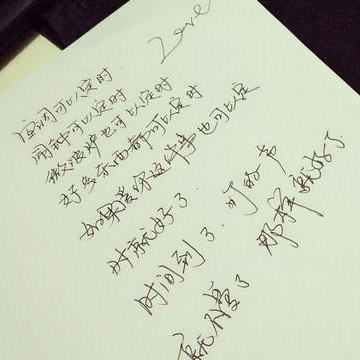 Love
空调可以定时
闹钟可以定时
微波炉也可以定时
好多东西都可以定时
如果爱你这件事也可以定
时就好了
时间到了 叮的一声
就不爱了
那样就好了